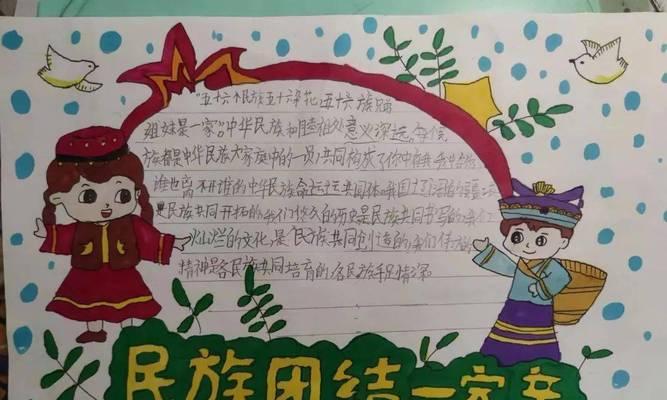 “五十六个民族五十六枝花,五十六族兄
姐妹是一家”,中华民族和睦相处意义深远,每个
族都是中华民族大家庭中的一员,共同构成了你中有我,我中有
谁也离不开谁的中华民族命运共同体,我国辽阔的疆
是民族共同开拓的,我们悠久的历史是民族共同书写的,我们
灿烂的文化是民族共同创造的,我们伟
精神是各民族共同培育的,各民族手足情深
民族团结一家亲